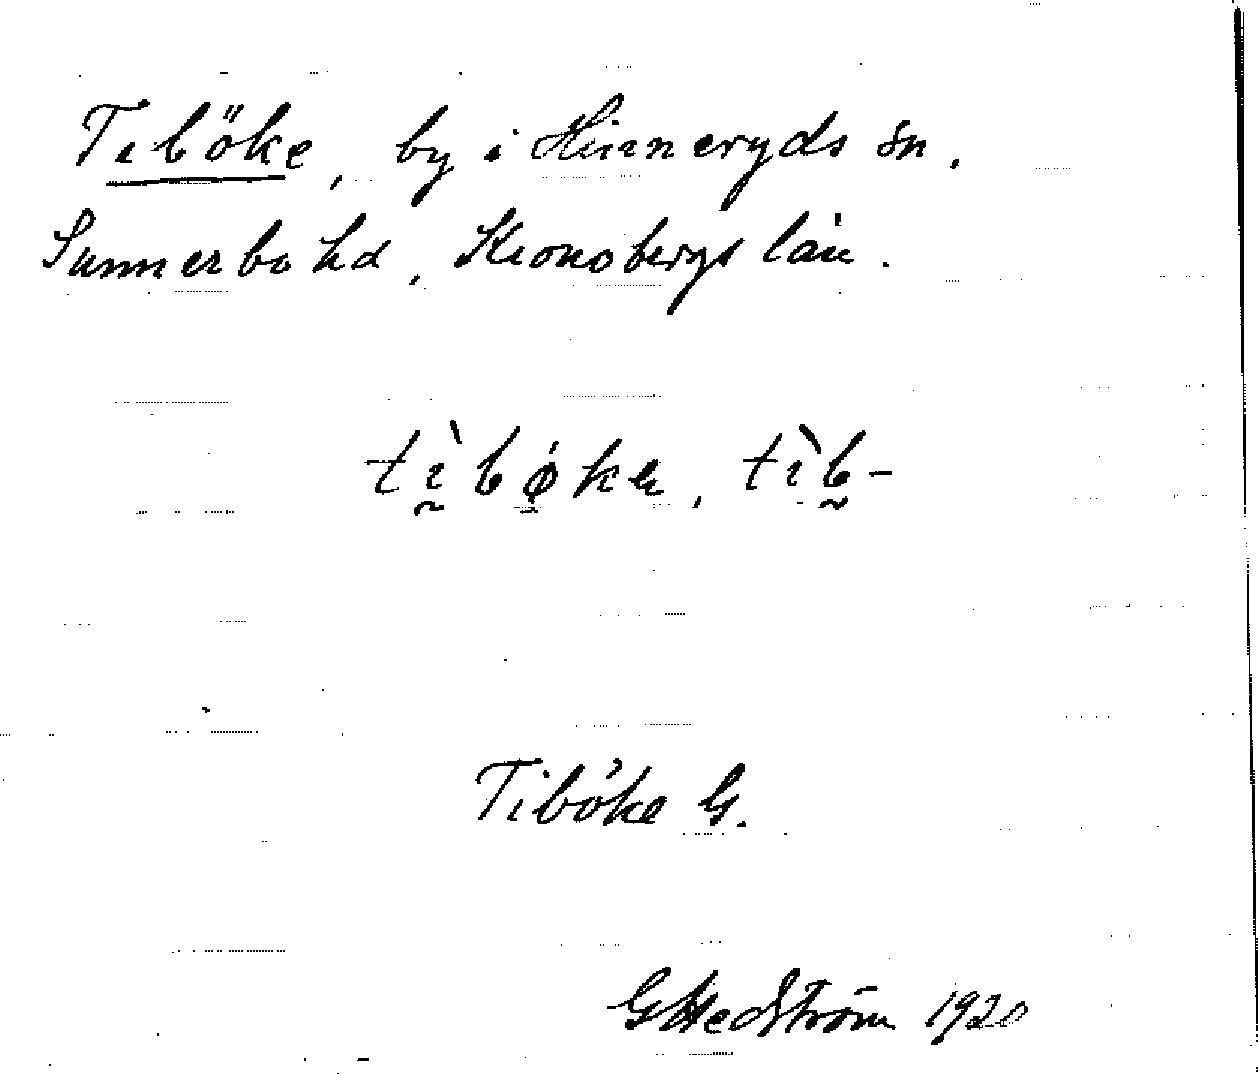 Tiböke, by i Hinneryds sn.
Sunnerbo hd, Kronobergs län.
tìbøkə, tìb-
Tiböke G.
GHedström 1920